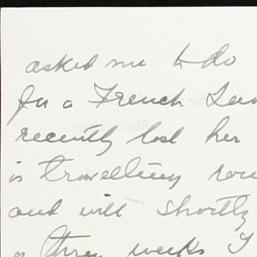 asked me to do
for a French
recently lost her
is travelling
and will shortly
three weeks I